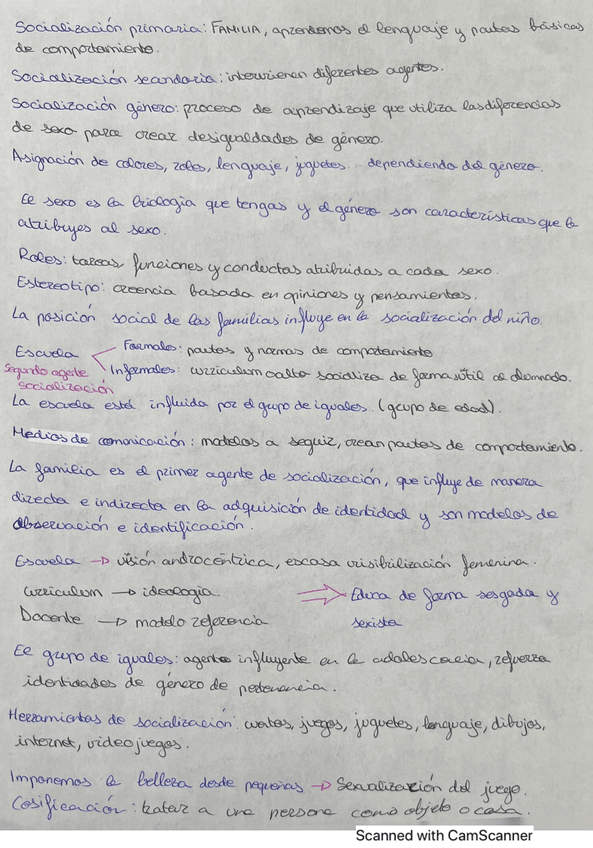 Socialización primaria: FAMILIA, aprendemos el lenguaje y pautas básicas
de comportamiento.
Socialización secundaria: intervienen diferentes agentes.
Socialización género: proceso de aprendizaje que utiliza las diferencias
de sexo para crear desigualdades de género.
Asignación de colores, roles, lenguaje, juguetes... dependiendo del género.
El sexo es la biología que tengas y el género son características que le
atribuyes al sexo.
Roles: tareas, funciones y conductas atribuidas a cada sexo.
Estereotipo: creencia basada en opiniones y pensamientos.
La posición social de las familias influye en la socialización del niño.
Escuela Formales: pautas y normas de comportamiento
Segundo agente Informales: curriculum oculto socializa de forma sútil al alumnado.
socialización
La escuela está influida por el grupo de iguales. (grupo de edad).
Medios de comunicación: modelos a seguir, crean pautas de comportamiento.
La familia es el primer agente de socialización, que influye de manera
directa e indirecta en la adquisición de identidad y son modelos de
observación e identificación.
Escuela → visión androcéntrica, escasa visibilización femenina.
Curriculum → ideología. ⇒ Educa de forma sesgada y
Docente → modelo referencia sexista
El grupo de iguales: agente influyente en la adolescencia, refuerza
identidades de género de pertenencia.
Herramientas de socialización: cuentos, juegos, juguetes, lenguaje, dibujos,
internet, videojuegos.
Imponemos la belleza desde pequeñas → Sexualización del juego.
Cosificación: tratar a una persona como objeto o cosa.
Scanned with CamScanner